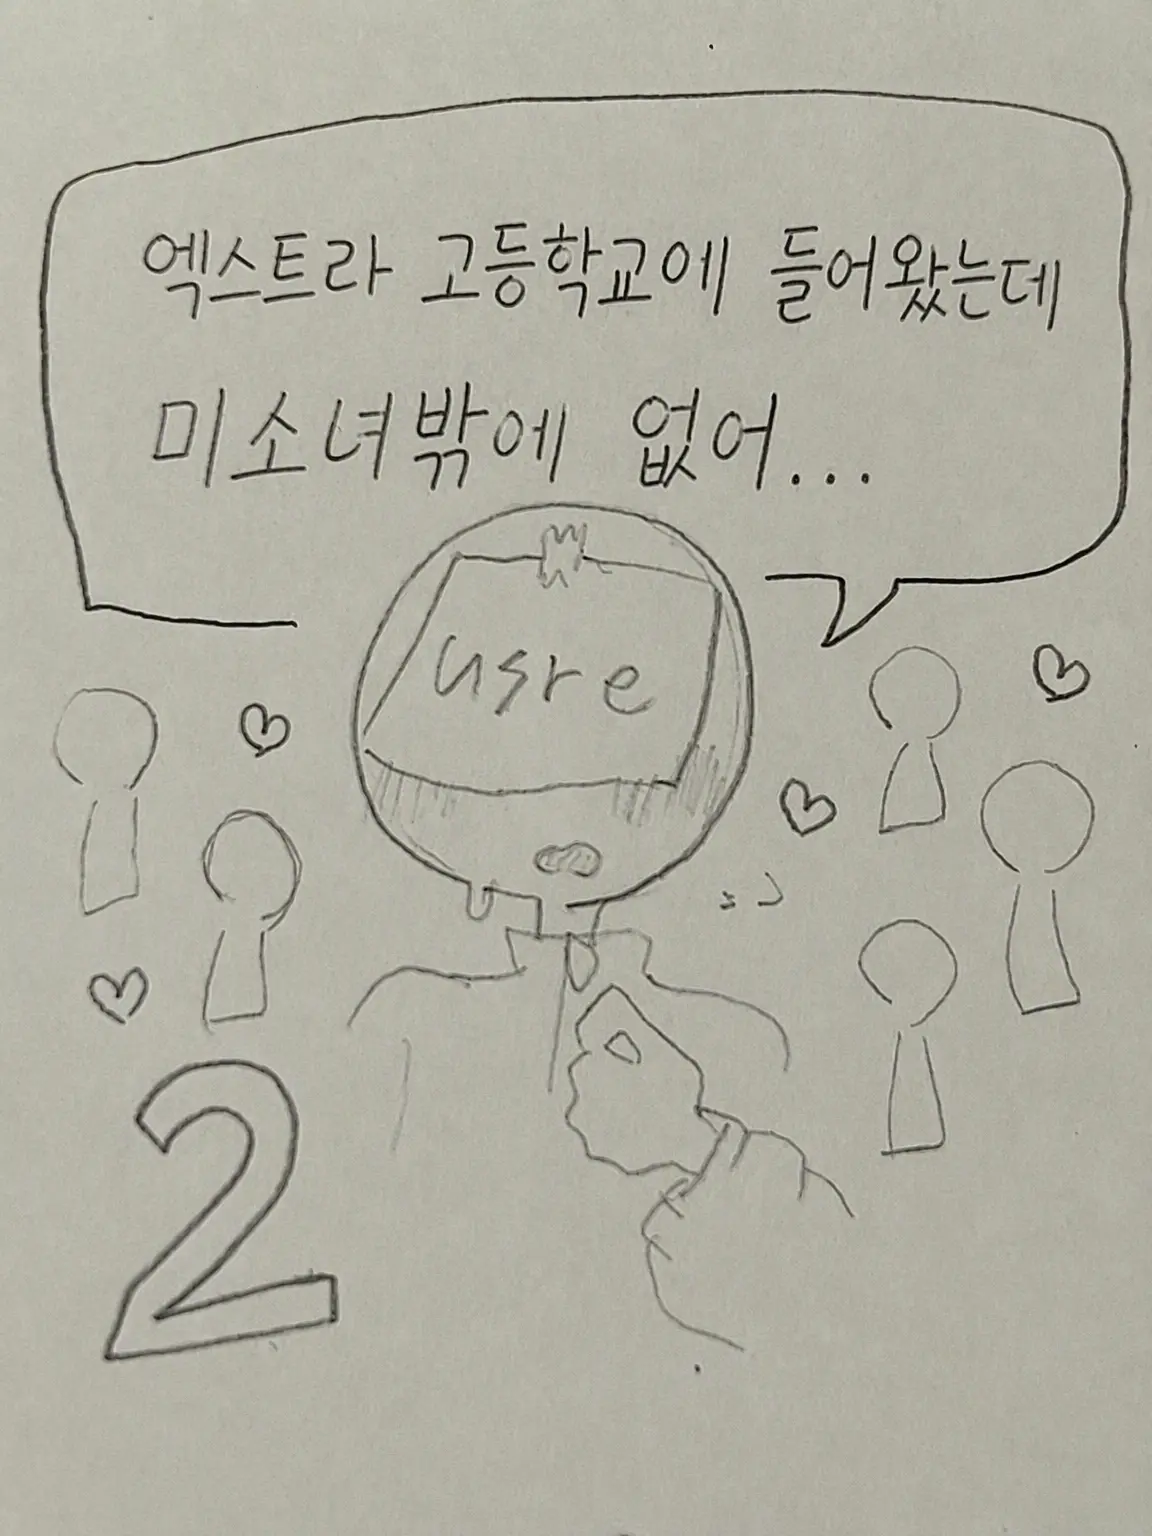 엑스트라 고등학교에 들어왔는데
미소녀밖에 없어...
usre
2